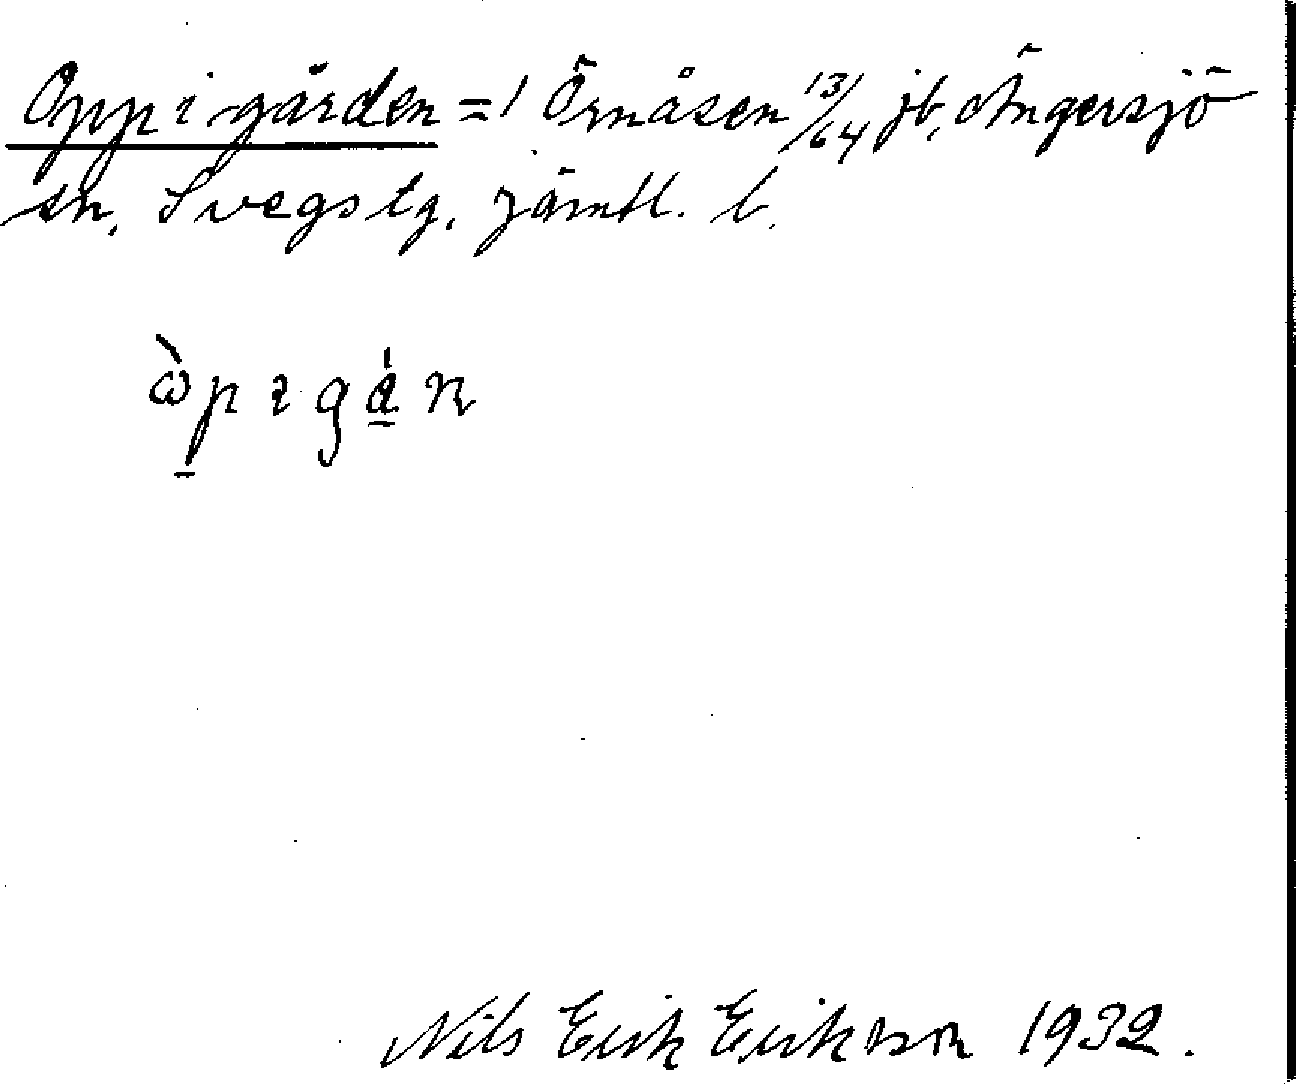 Oppigården = 1 Örnåsen 13/64 jb, Ängersjö
sn, Svegs tg. Jämtl. l.
ɷ̀pıgán
Nils Erik Erikson 1932.